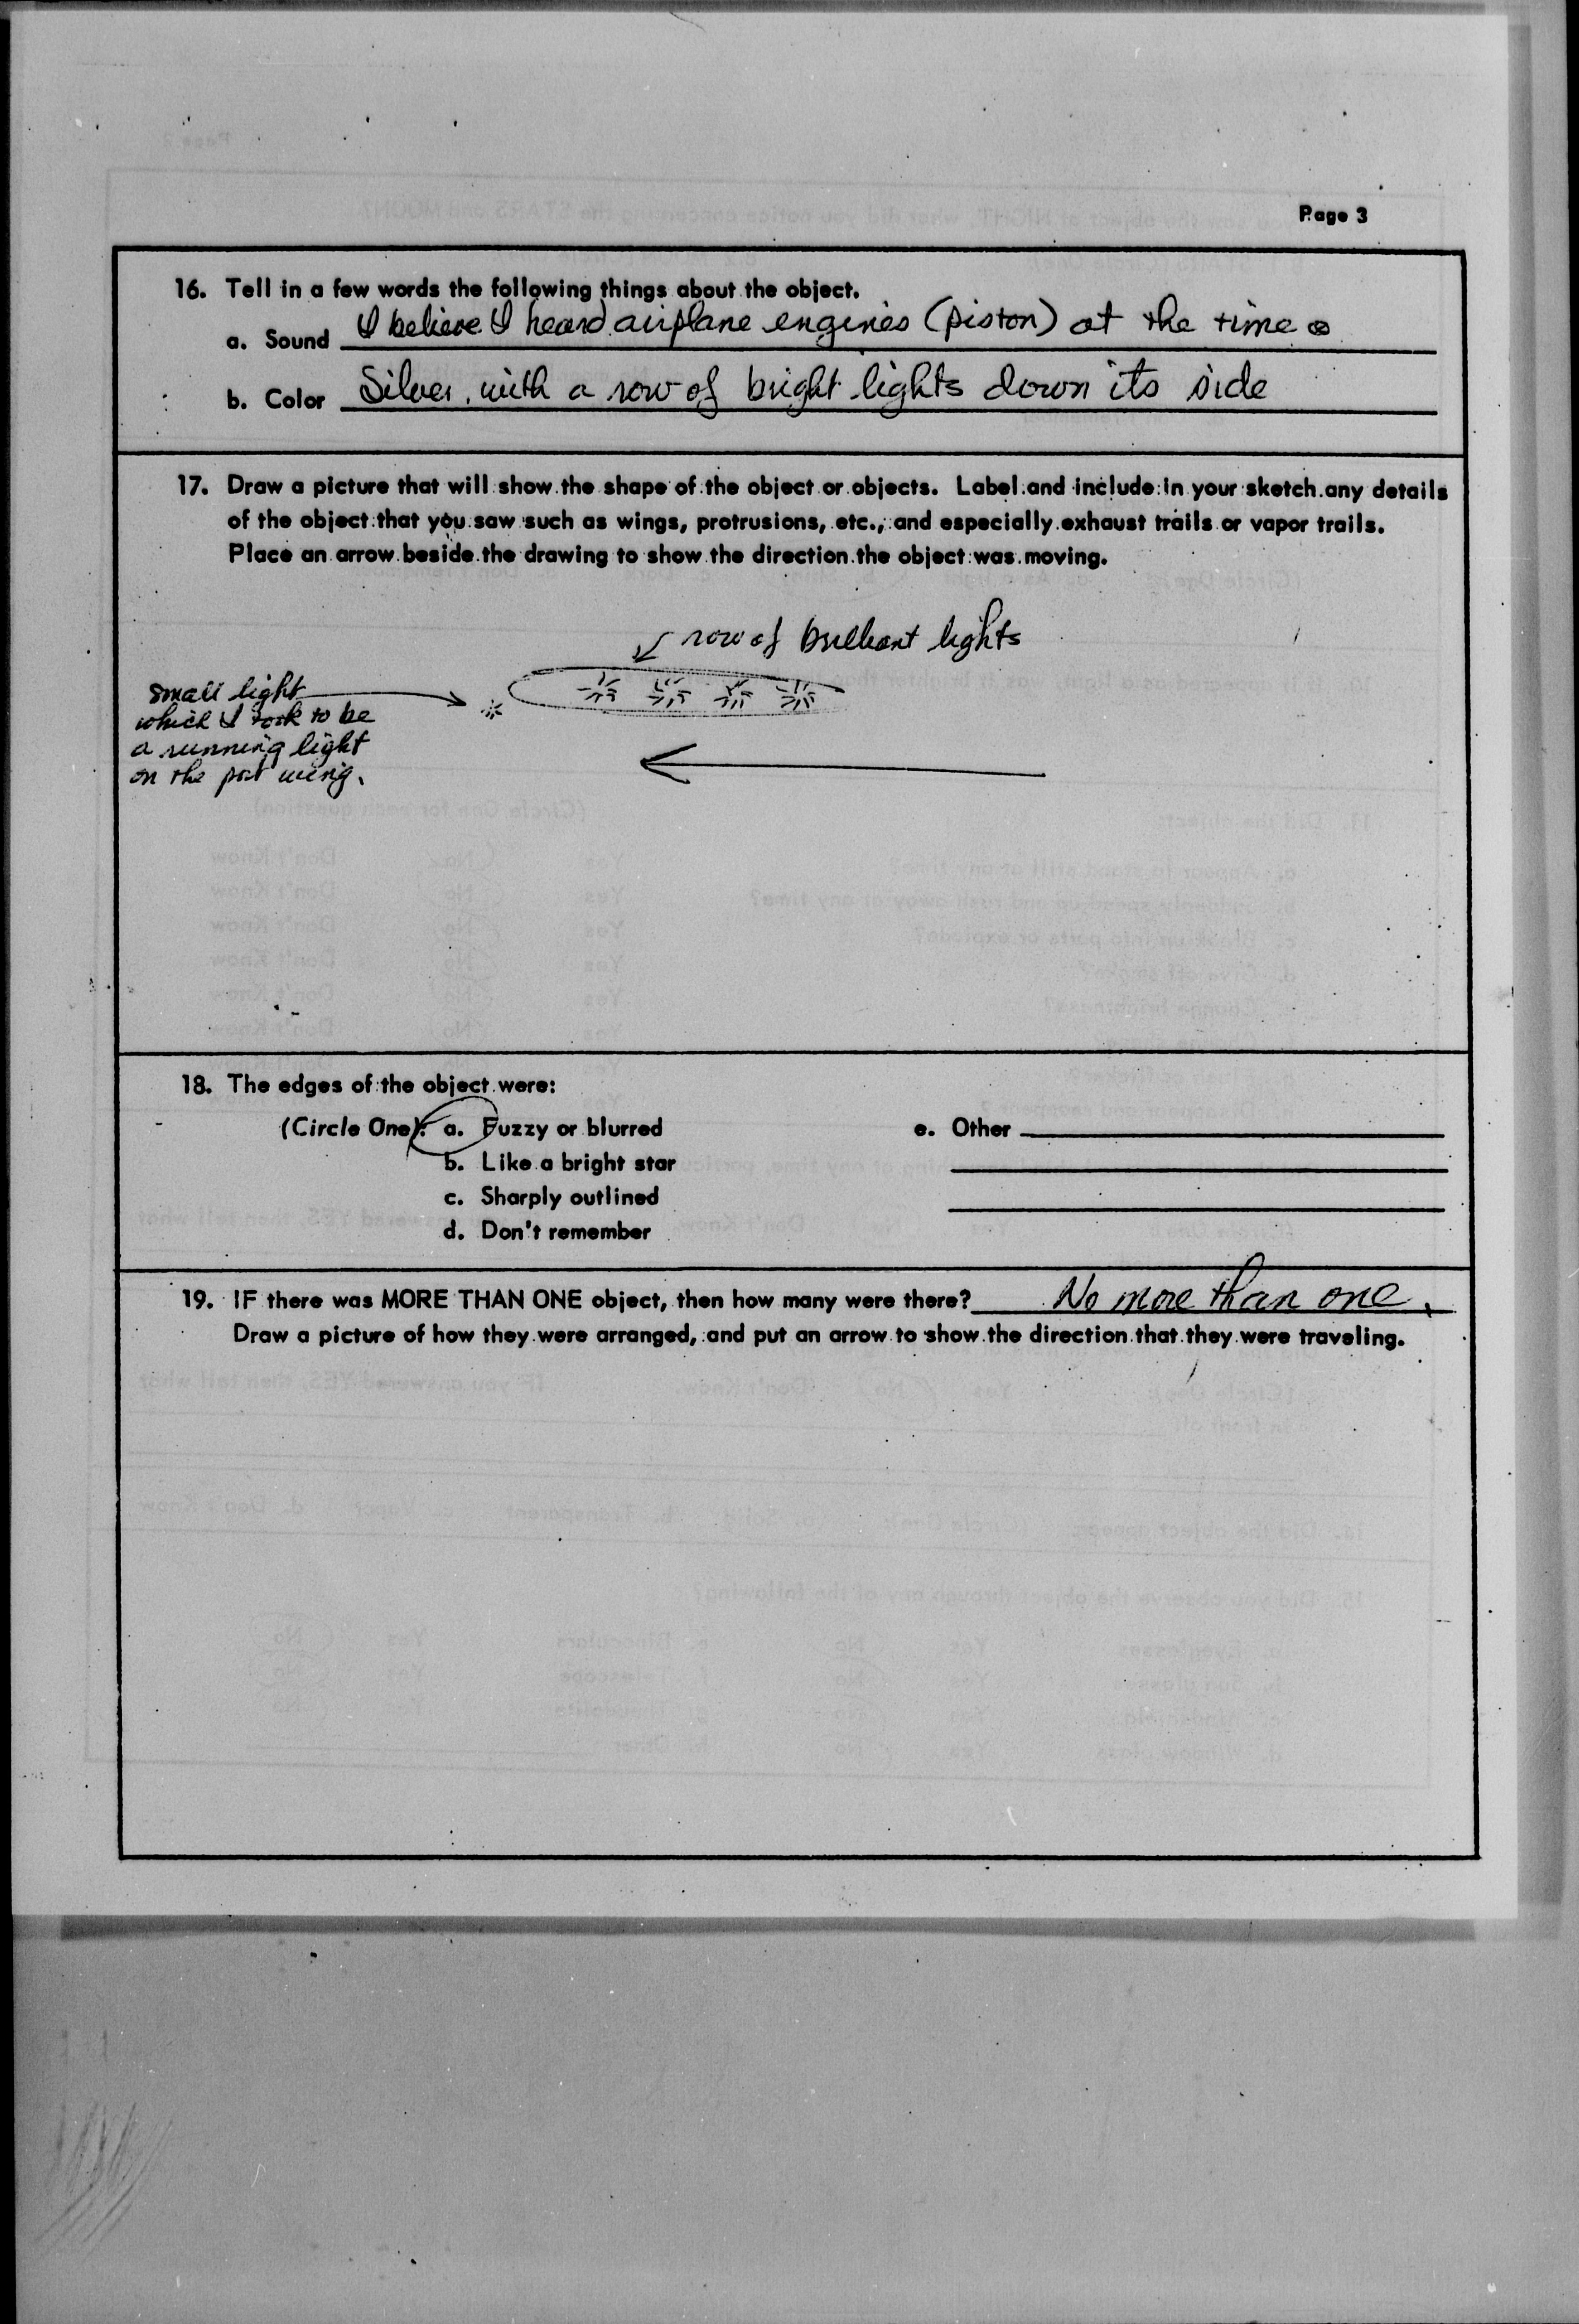 Page 3
16. Tell in a few words the following things about the object.
a. Sound I believe I heard airplane engines (piston) at the time
b. Color Silver, with a row of bright lights down its side
17. Draw a picture that will show the shape of the object or objects. Label and include in your sketch any details
of the object that you saw such as wings, protrusions, etc., and especially exhaust trails or vapor trails.
Place an arrow beside the drawing to show the direction the object was moving.
row of brilliant lights
small light
which I took to be
a running light
on the port wing.
18. The edges of the object were:
(Circle One): a. Fuzzy or blurred e. Other
b. Like a bright star
c. Sharply outlined
d. Don't remember
19. IF there was MORE THAN ONE object, then how many were there? No more than one.
Draw a picture of how they were arranged, and put an arrow to show the direction that they were traveling.